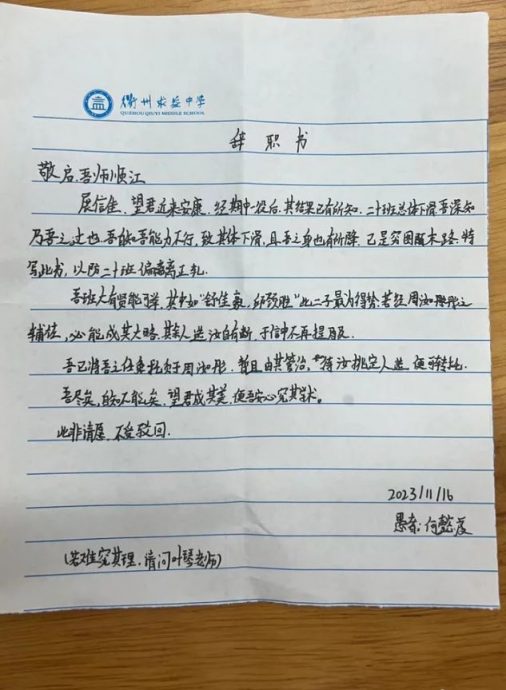 衢州求益中学
QUZHOU QIUYI MIDDLE SCHOOL
辞 职 书
敬启吾师顺江
展信佳，望君近来安康，经期中一役后，其结果已有所知，二十班总体下滑，吾深知
乃吾之过也，吾能力不行，致其体下滑，且吾之身也有所降，已是穷困末路，特
写此书，以防二十班偏离正轨。
吾班大有贤能可举，其中如"舒佳，邱致胜"此二子最为得势，若经周汝之
辅佐，必能成其大略，其余人选汝自有断，于信中不再提及。
吾已将吾之任免托于周汝彤，暂且由其管治，待汝挑定人选，便可转之。
吾尽矣，自知不能矣，望君成其美，使吾安心究其学术。
此非请愿，不必致回。
2023/11/16
愚者：何懿
(若难究其理，请问叶琴老师)